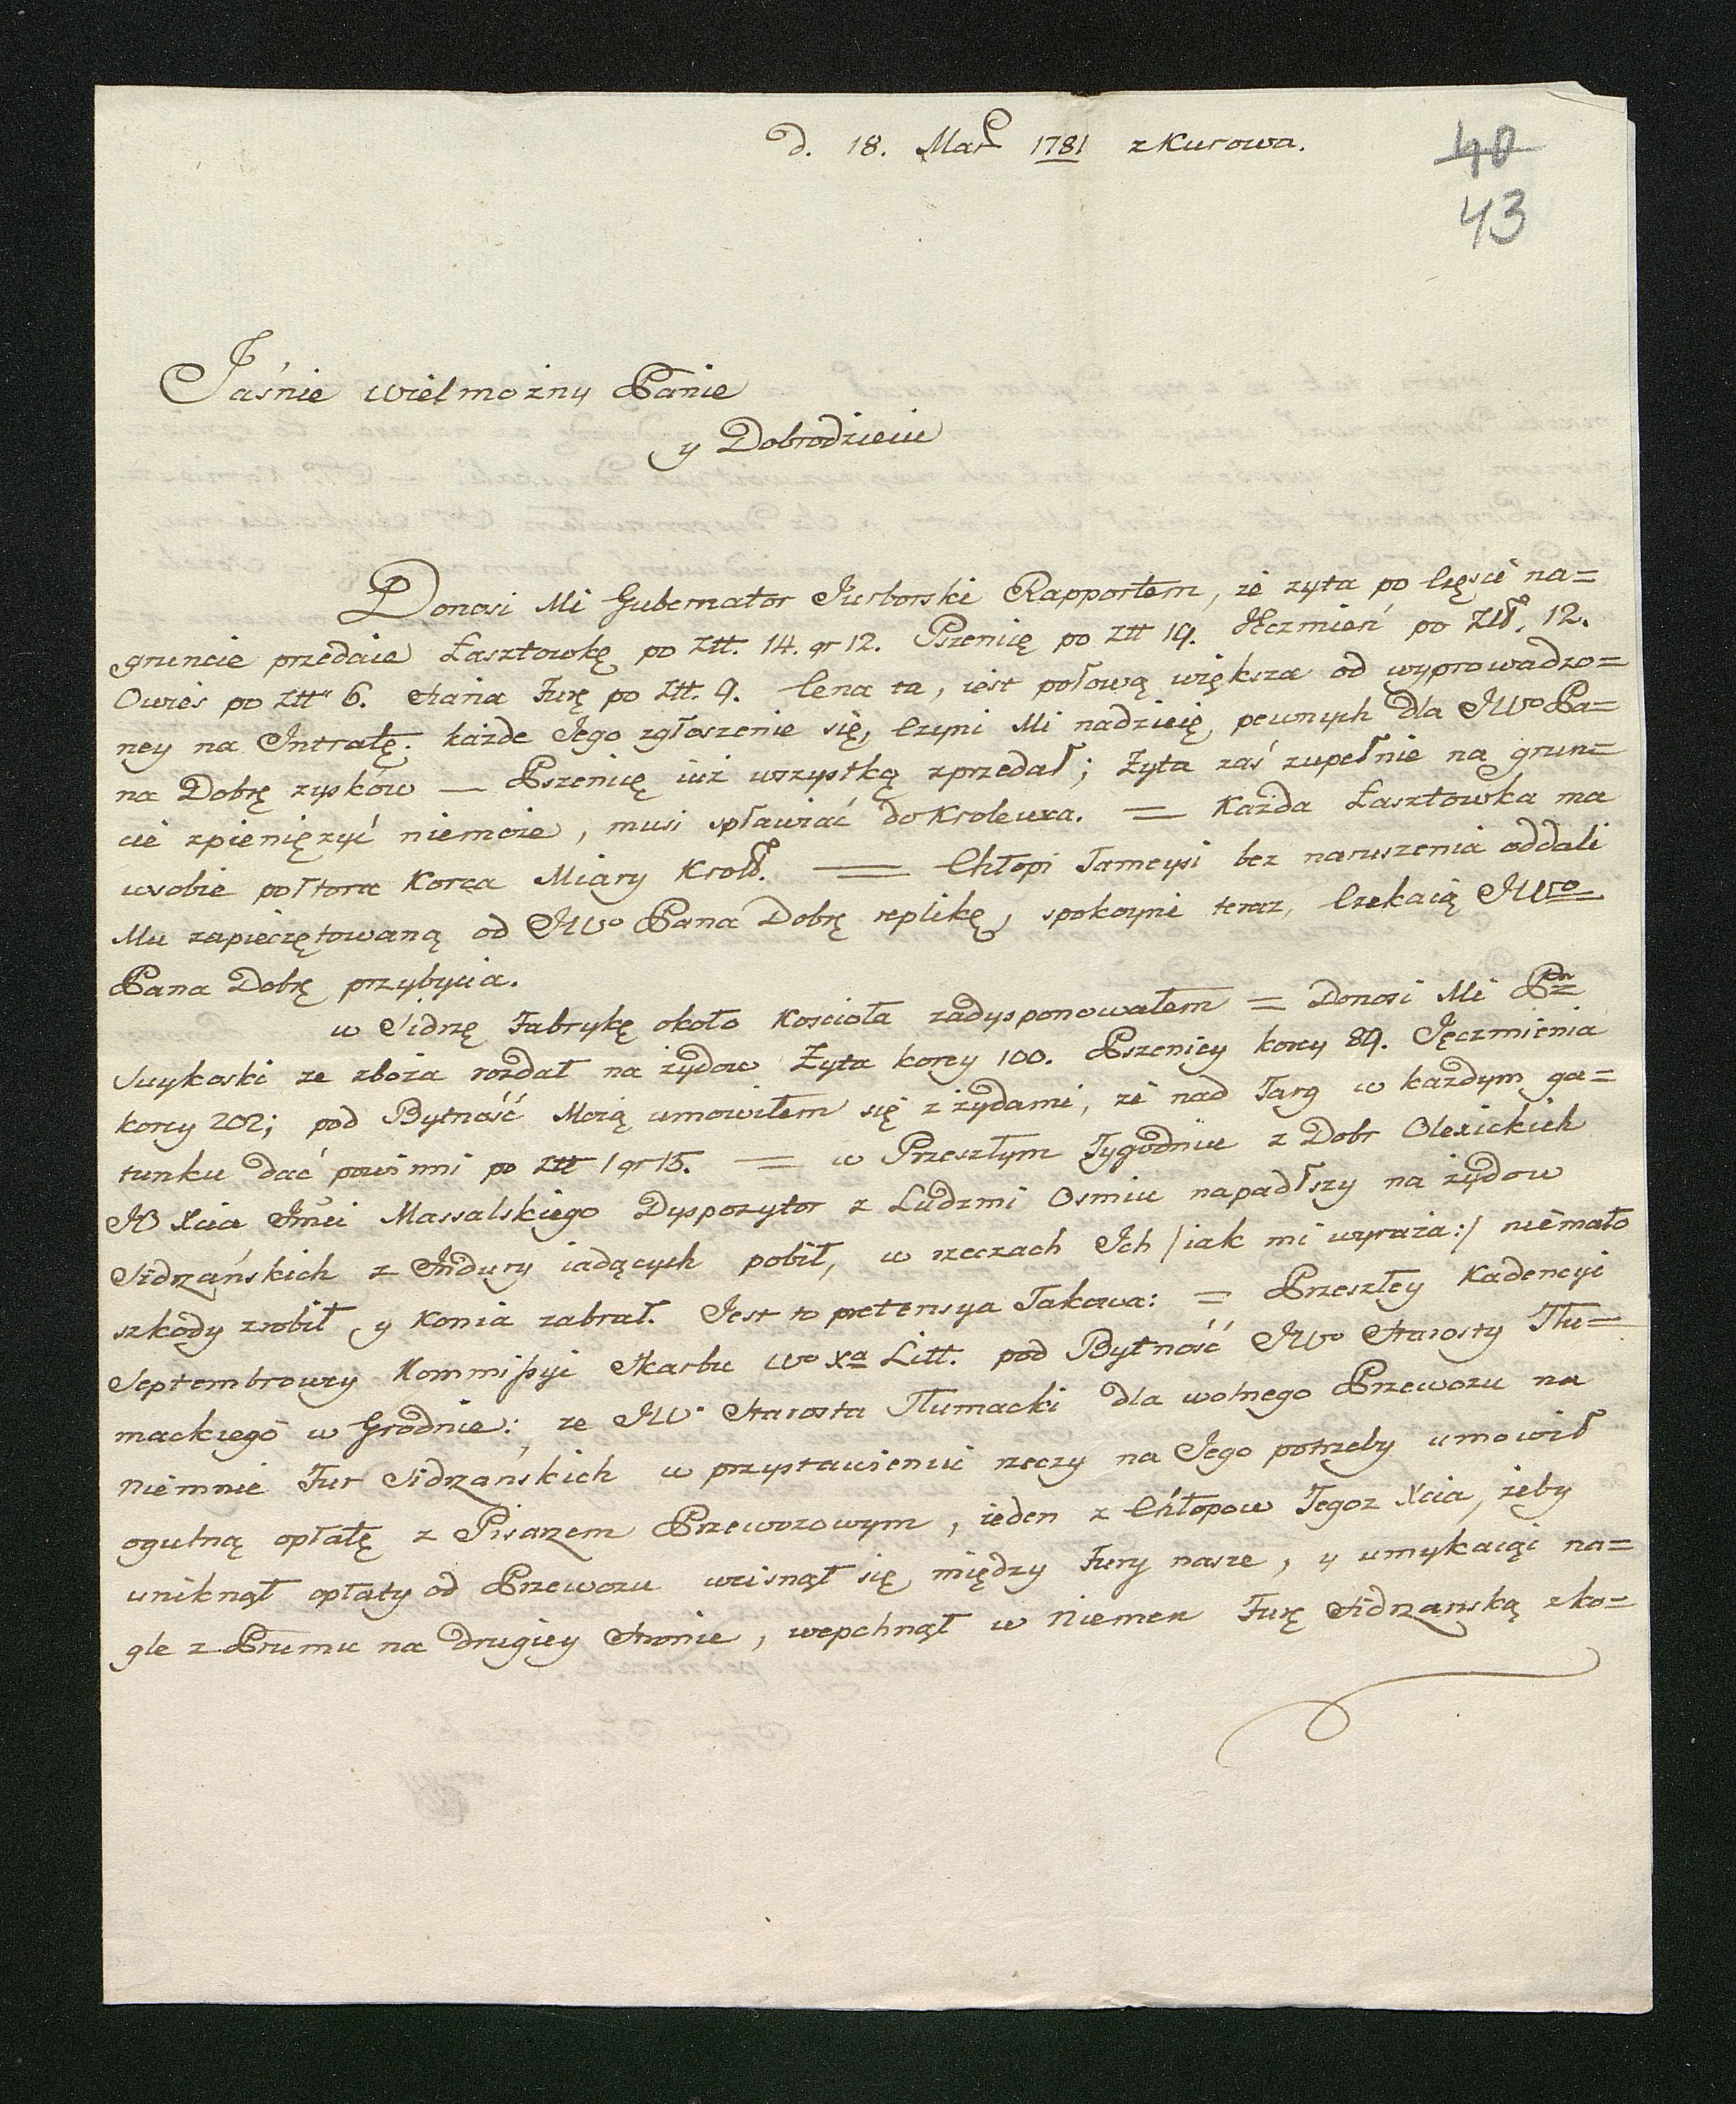 D. 18. Mar 1781 z Kurowa.
40
43
Jaśnie wielmożny Panie
y Dobrodzieiu
Donosi Mi Gubernator Jurborski Rapportem, że zyta po Częsci na=
gruncie przedaie Łasztowkę po Ztt. 14. gr 12. Pszenicę po Ztt 19. Jęczmień po Ztł. 12.
Owies po Ztt 6. Siana Furę po Ztt. 9. Cena ta, iest połową większa od wyprowadzo=
ney na Intratę. każde Jego zgłoszenie się, Czyni Mi nadzieię pewnych dla JWo Pa=
na Dobrę zysków — Pszenicę iuż wszystką zprzedał; Żyta zaś zupełnie na grun=
cie zpieniężyć niemoże, musi spławiać do Krolewca. = Każda Łasztowka ma
w sobie połtora Korca Miary Krolł. = Chłopi Tameysi bez naruszenia oddali
Mu zapieczętowaną od JWo Pana Dobrę replikę, spokoyni teraz, Czekaią JWo
Pana Dobrę przybycia.
w Sidrzę Fabrykę około Kościoła zadysponowałem = Donosi Mi Pn
Suykoski ze zboża rozdał na żydow Żyta korcy 100. Pszenicy korcy 89. Jęczmienia
korcy 202; pod Bytność Moią umowiłem się z żydami, że nad Targ w każdym ga=
tunku dać powinni po Ztt 1 gr 15. = w Przeszłym Tygodniu z Dobr Olexickich
JO Xcia Jmci Massalskiego Dyspozytor z Ludzmi Osmiu napadłszy na żydow
Sidrzańskich z Indury iadących pobił, w rzeczach Ich /iak mi wyraża:/ niemało
szkody zrobił y Konia zabrał. Jest to pretensya Takowa: = Przeszłey Kadencyi
Septembrowey Kommissyi Skarbu Wo Xa Litt. pod Bytność JWo Starosty Tłu=
mackiego w Grodnie:, ze JWo Starosta Tłumacki dla wolnego Przewozu na
Niemnie Fur Sidrzańskich w przystawieniu rzeczy na Jego potrzeby umowił
ogulną opłatę z Pisarzem Przewozowym, ieden z Chłopow Tegoz Xcia, żeby
uniknął opłaty od Przewozu wcisnął się między Fury nasze, y umykaiąc na=
gle z Prumu na drugiey stronie, wepchnął w Niemen Furę Sidrzanską z ko=